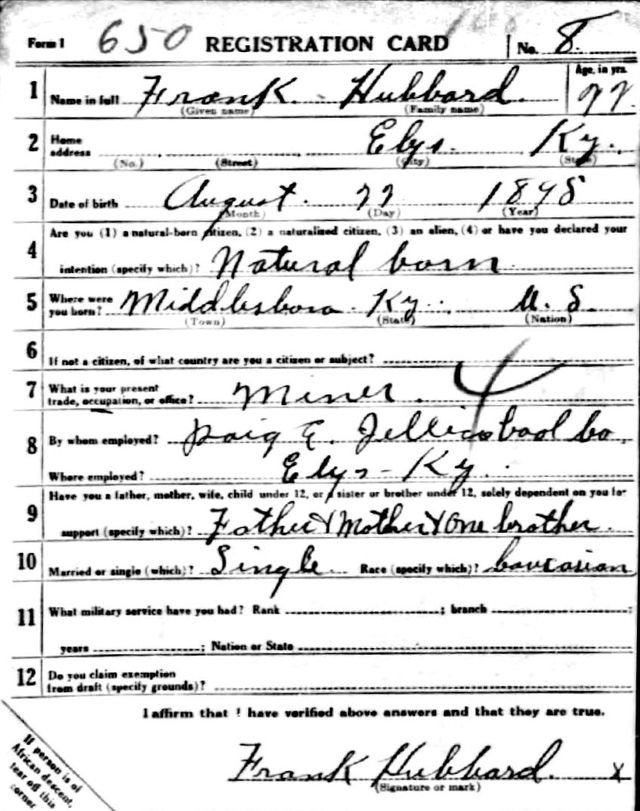 Form 1 650 REGISTRATION CARD No. 8
1 Name in full Frank Hubbard Age, in yrs. 22
(Given name) (Family name)
2 Home address Elys. Ky.
(No.) (Street) (City) (State)
3 Date of birth August 22 1898
(Month) (Day) (Year)
4 Are you (1) a natural-born citizen, (2) a naturalized citizen, (3) an alien, (4) or have you declared your
intention (specify which)? Natural born
5 Where were you born? Middlesboro Ky. U. S.
(Town) (State) (Nation)
6 If not a citizen, of what country are you a citizen or subject?
7 What is your present trade, occupation, or office? Miner.
8 By whom employed? Jellico Coal Co.
Where employed? Elys - Ky.
9 Have you a father, mother, wife, child under 12, or a sister or brother under 12, solely dependent on you for
support (specify which)? Father & Mother & One brother.
10 Married or single (which)? Single Race (specify which)? Caucasian
11 What military service have you had? Rank ; branch ;
years ; Nation or State
12 Do you claim exemption from draft (specify grounds)?
I affirm that I have verified above answers and that they are true.
Frank Hubbard. x
(Signature or mark)
If person is of
African descent,
tear off this
corner